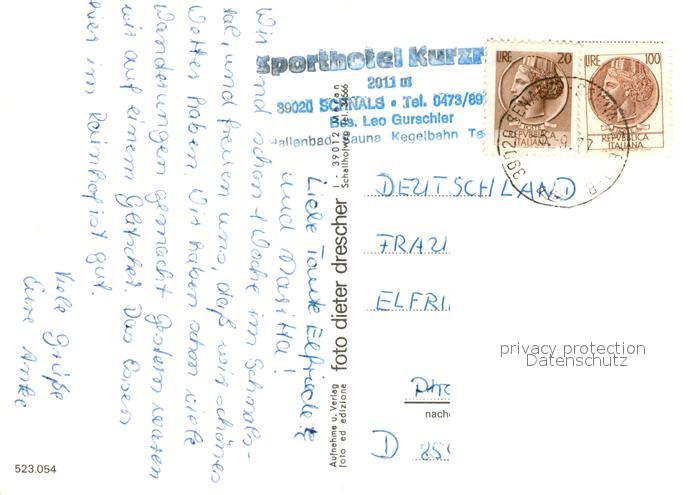 Liebe Tante Elfriede
und Marita!
Wir sind schon 1 Woche im Schnals-
tal, und freuen uns, daß wir schönes
Wetter haben. Wir haben schon viele
Wanderungen gemacht gestern waren
wir auf einem Gletscher. Das Essen
hier im Kurzhof ist gut.
Viele Grüße
Eure Antke
523.054
Sporthotel Kurzr
2011 m
39020 SCHNALS • Tel. 0473/89
Bes. Leo Gurschler
allenbad Sauna Kegelbahn Te
Aufnahme u. Verlag
foto ed edizione
foto dieter drescher
I - 39012 Meran
LIRE 20
REPUBBLICA
ITALIANA
LIRE 100
REPUBBLICA
ITALIANA
DEUTSCHLAND
FRAU
ELFRI
nache
D 85
privacy protection
Datenschutz